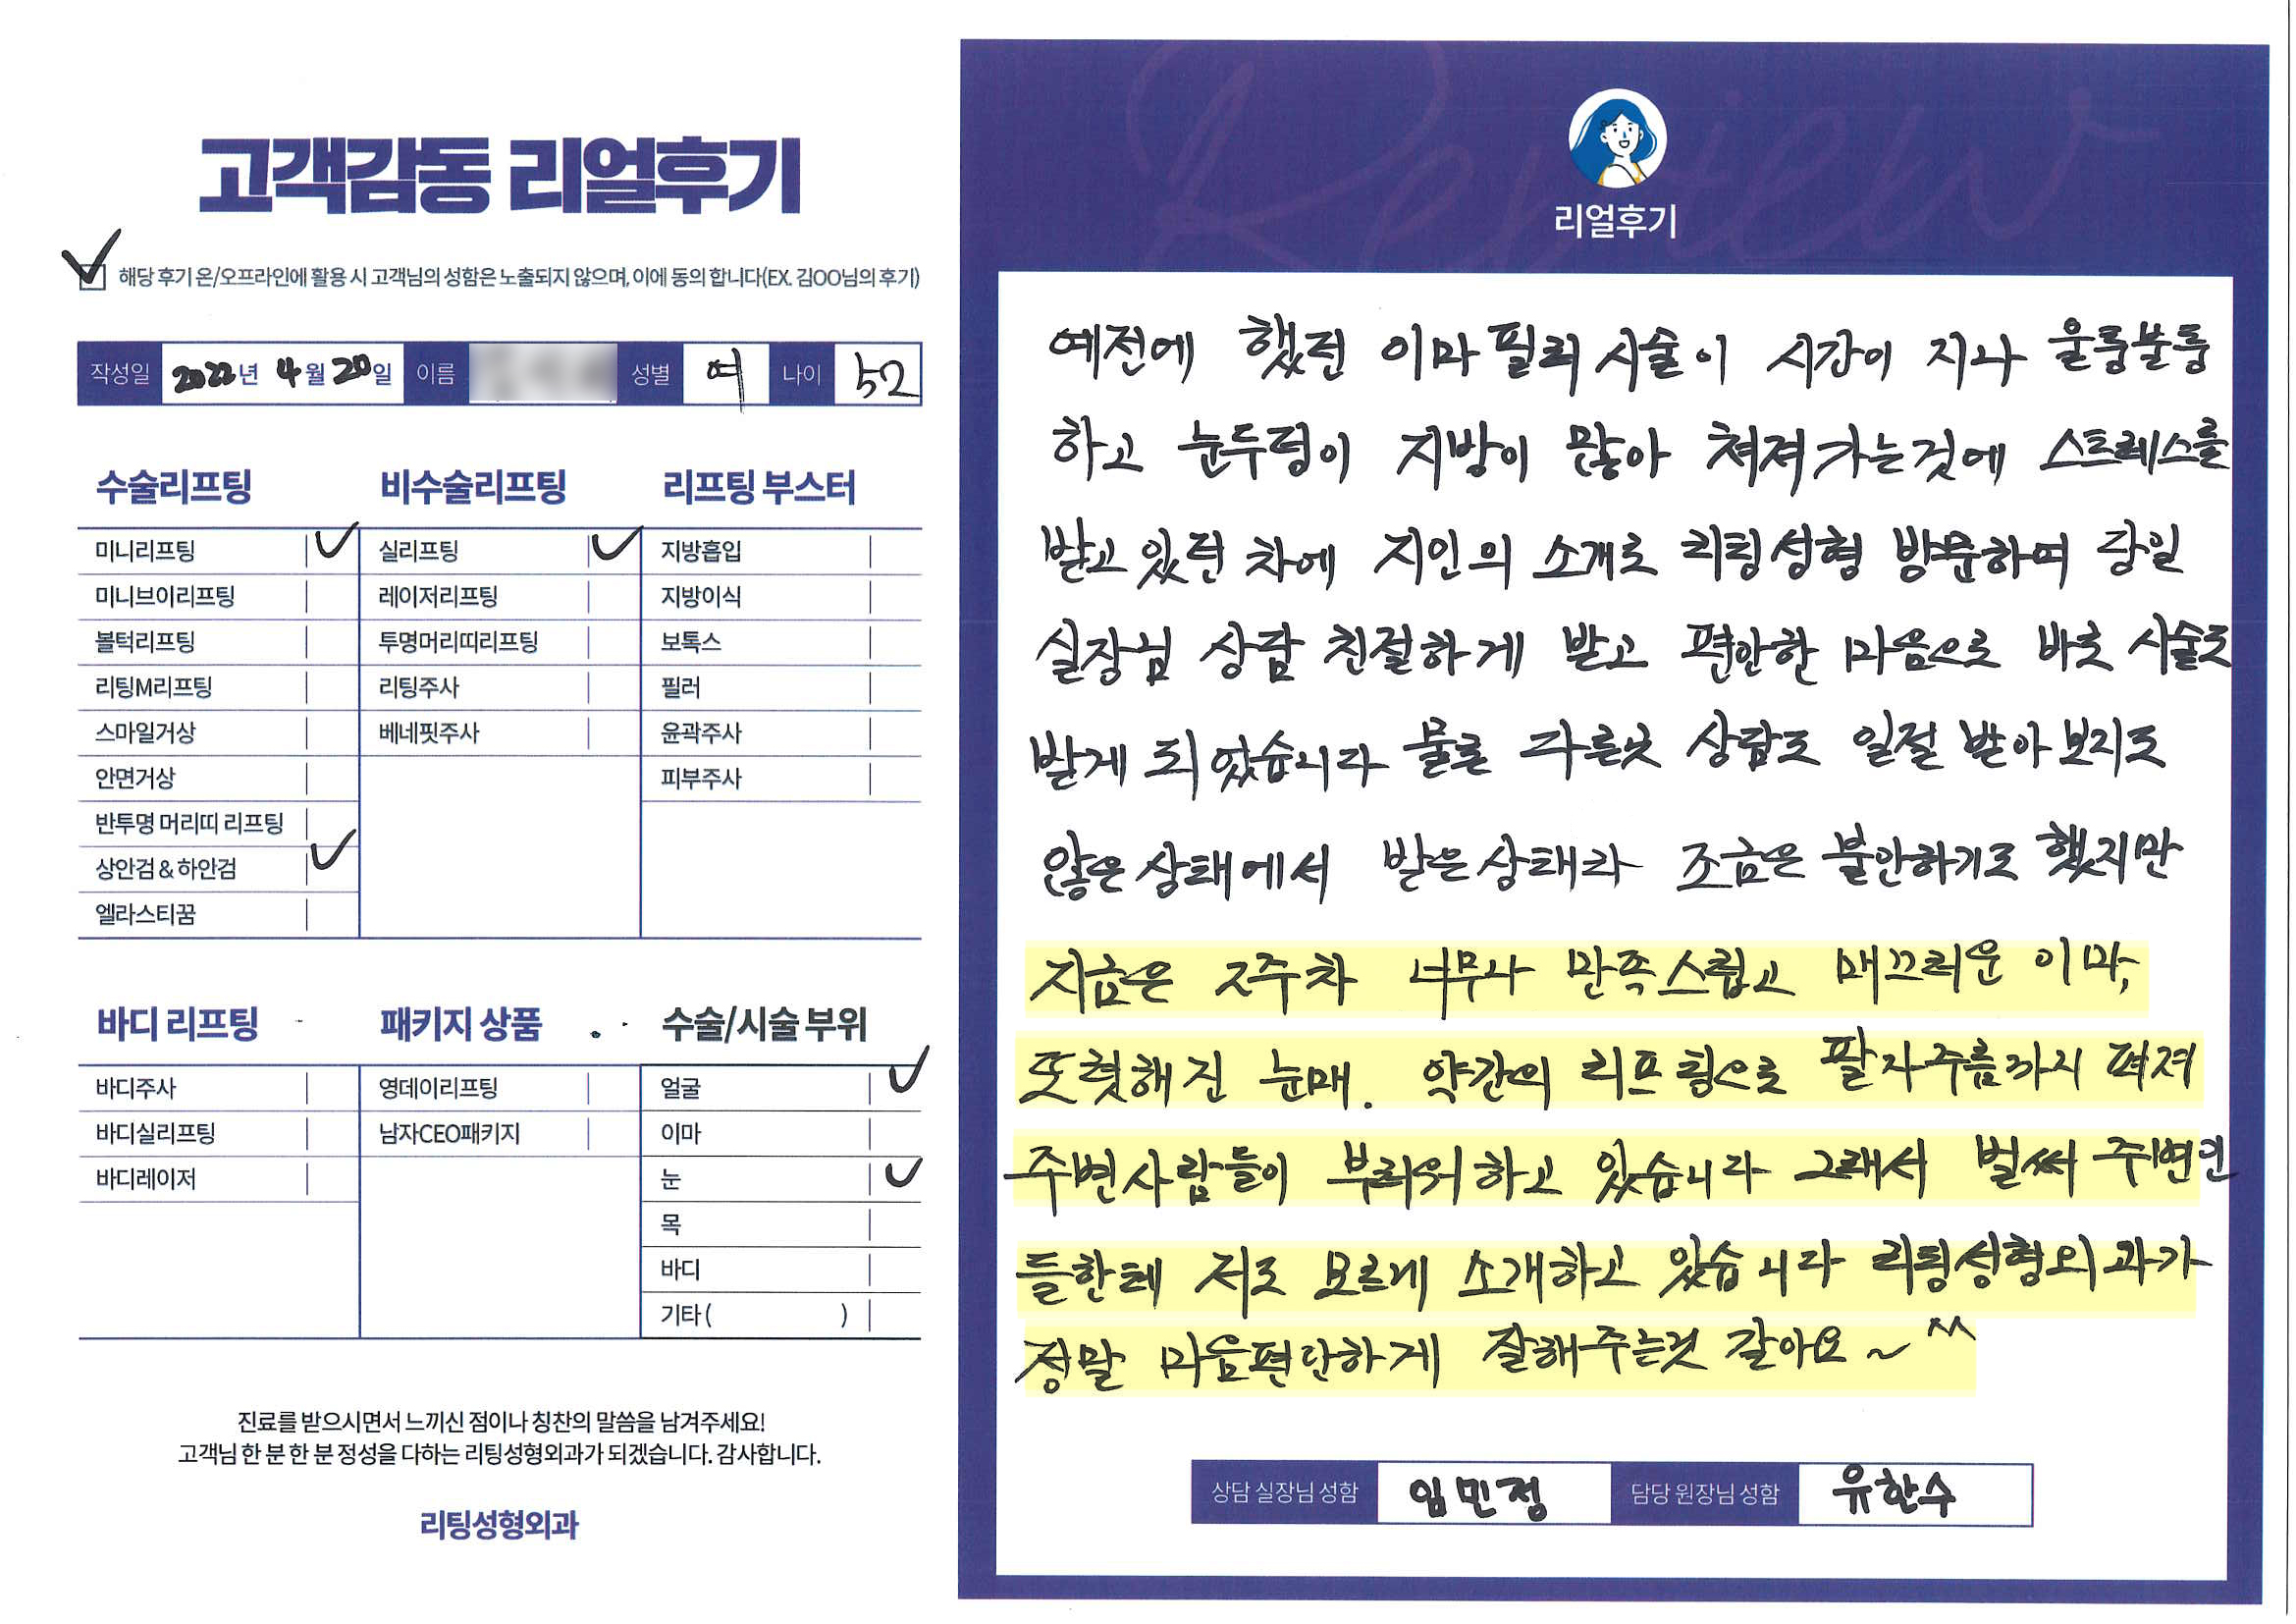 고객감동 리얼후기
해당 후기 온/오프라인에 활용 시 고객님의 성함은 노출되지 않으며, 이에 동의 합니다(EX. 김OO님의 후기)
작성일 2022년 4월 20일 이름 성별 여 나이 52
수술리프팅
미니리프팅
미니브이리프팅
볼턱리프팅
리팅M리프팅
스마일거상
안면거상
반투명 머리띠 리프팅
상안검 & 하안검
엘라스티꿈
비수술리프팅
실리프팅
레이저리프팅
투명머리띠리프팅
리팅주사
베네핏주사
리프팅 부스터
지방흡입
지방이식
보톡스
필러
윤곽주사
피부주사
바디 리프팅
바디주사
바디실리프팅
바디레이저
패키지 상품
영데이리프팅
남자CEO패키지
수술/시술 부위
얼굴
이마
눈
목
바디
기타 ( )
진료를 받으시면서 느끼신 점이나 칭찬의 말씀을 남겨주세요!
고객님 한 분 한 분 정성을 다하는 리팅성형외과가 되겠습니다. 감사합니다.
리팅성형외과
Review
리얼후기
예전에 했던 이마필러 시술이 시간이 지나 울룽불룽
하고 눈두덩이 지방이 많아 쳐져가는것에 스트레스를
받고 있던 차에 지인의 소개로 리팅성형 방문하여 당일
실장님 상담 친절하게 받고 편안한 마음으로 바로 시술도
받게 되었습니다 물론 다른곳 상담도 일절 받아보지도
않은상태에서 받은상태라 조금은 불안하기도 했지만
지금은 2주차 너무나 만족스럽고 매끄러운 이마,
또렷해진 눈매. 약간의 리프팅으로 팔자주름까지 펴져
주변사람들이 부러워하고 있습니다 그래서 벌써 주변인
들한테 저도 모르게 소개하고 있습니다 리팅성형외과가
정말 마음편안하게 잘해주는것 같아요~^^
상담 실장님 성함 임민정 담당 원장님 성함 유한수